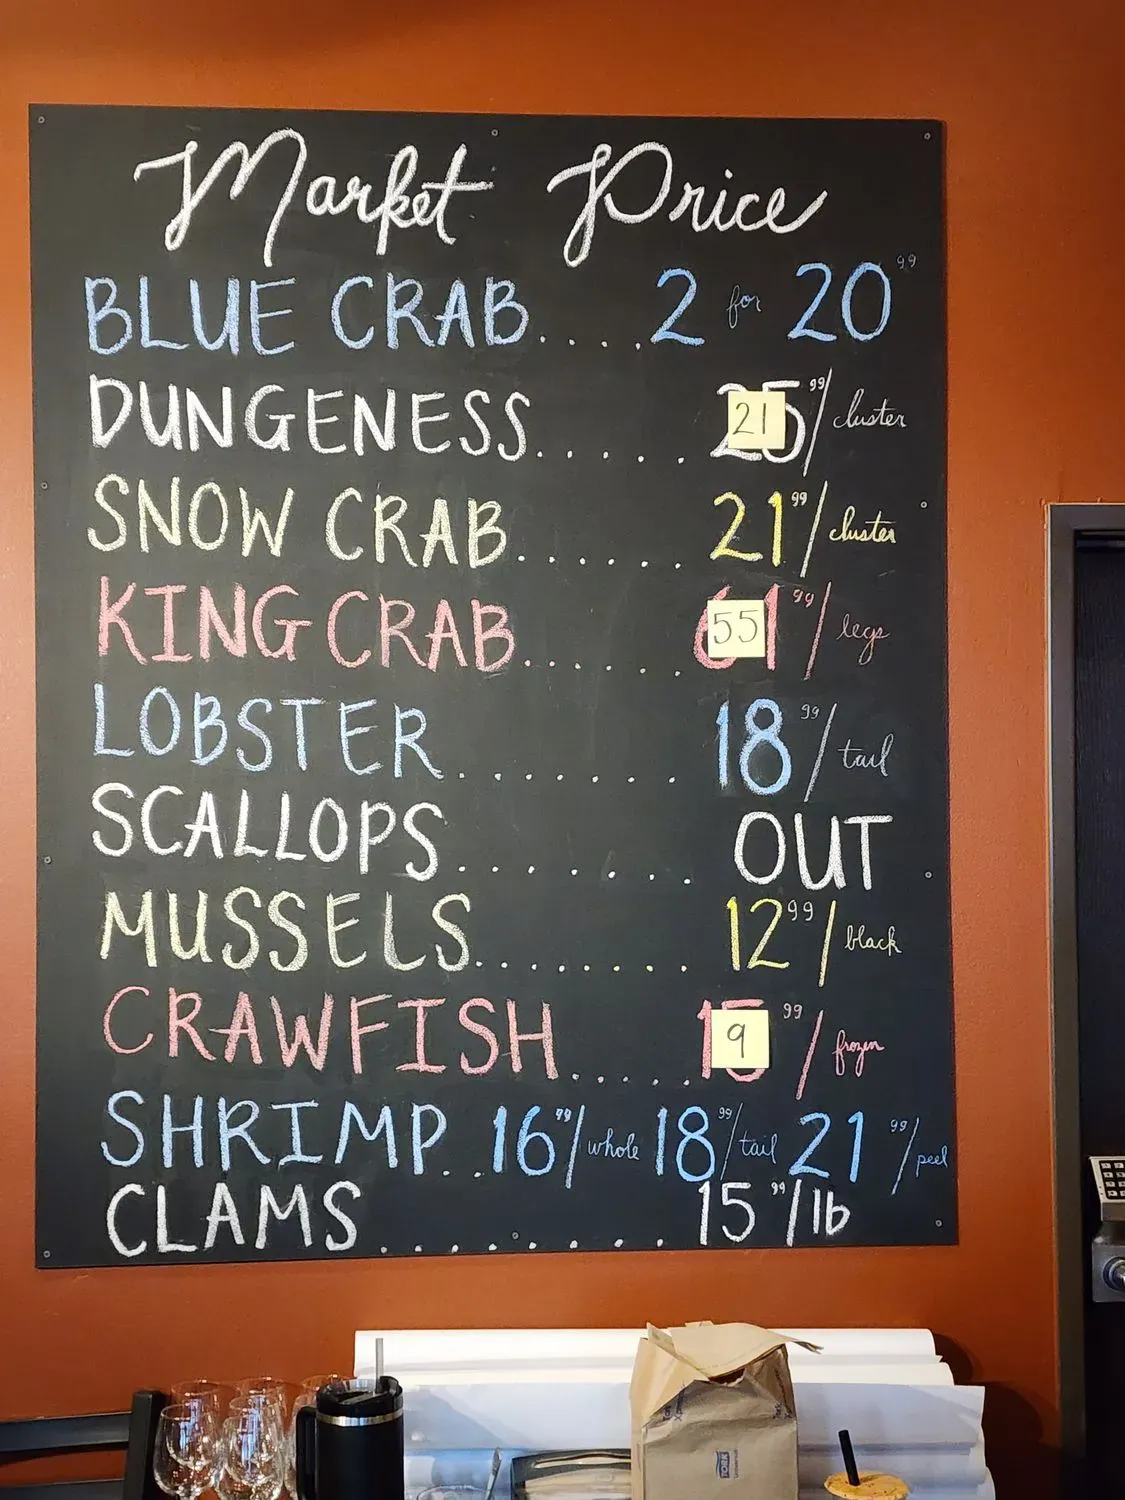 Market Price
BLUE CRAB....2 for 20 99
DUNGENESS...... 21 99/cluster
SNOW CRAB....... 21 99/cluster
KING CRAB....... 55 99/legs
LOBSTER........ 18 99/tail
SCALLOPS........ OUT
MUSSELS........ 12 99/black
CRAWFISH...... 9 99/frozen
SHRIMP..16 99/whole 18 99/tail 21 99/peel
CLAMS......... 15 99/lb
TORK